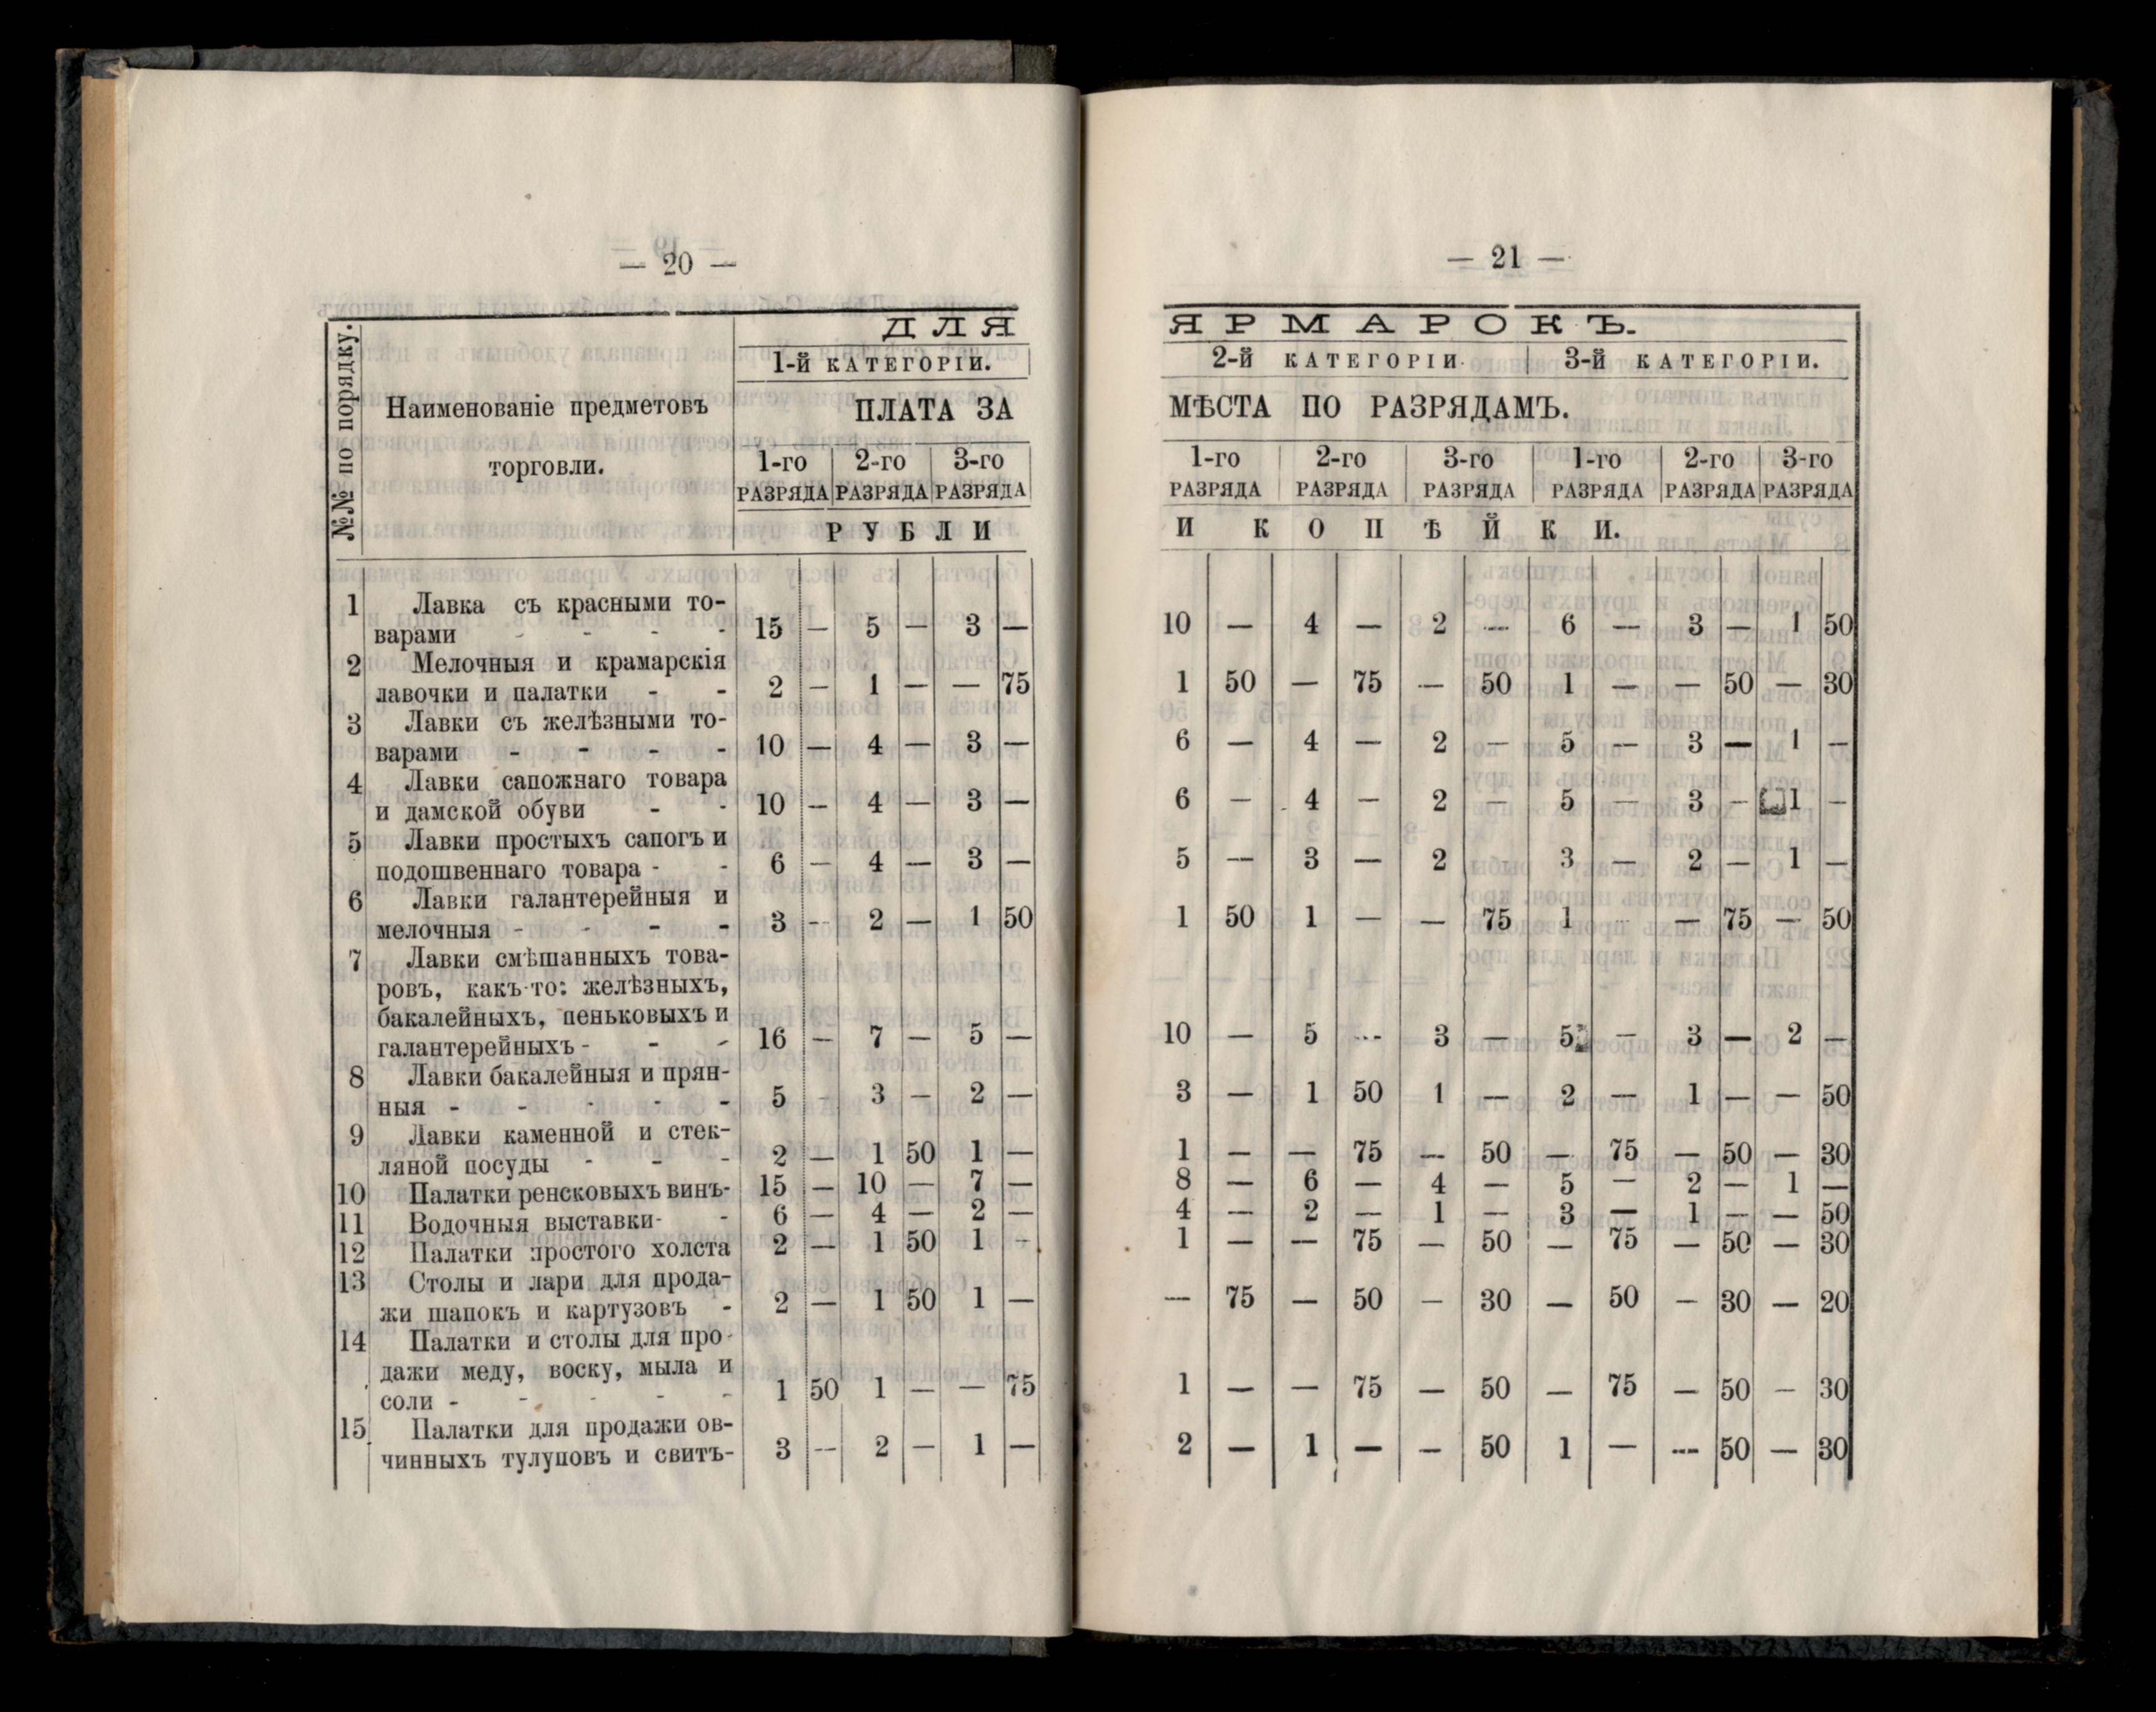 — 20 —
ДЛЯ
1-й КАТЕГОРІИ.
№№ по порядку.
Наименованіе предметовъ
торговли.
ПЛАТА ЗА
1-го 2-го 3-го
РАЗРЯДА РАЗРЯДА РАЗРЯДА
РУБЛИ
1 Лавка съ красными то-
варами - - - - 15 — 5 — 3 —
2 Мелочныя и крамарскія
лавочки и палатки - - 2 — 1 — — 75
3 Лавки съ желѣзными то-
варами - - - - 10 — 4 — 3 —
4 Лавки сапожнаго товара
и дамской обуви - - 10 — 4 — 3 —
5 Лавки простыхъ сапогъ и
подошвеннаго товара - - 6 — 4 — 3 —
6 Лавки галантерейныя и
мелочныя - - - - 3 — 2 — 1 50
7 Лавки смѣшанныхъ това-
ровъ, какъ-то: желѣзныхъ,
бакалейныхъ, пеньковыхъ и
галантерейныхъ - - - 16 — 7 — 5 —
8 Лавки бакалейныя и прян-
ныя - - - - - 5 - 3 — 2 —
9 Лавки каменной и стек-
ляной посуды - - - 2 — 1 50 1 —
10 Палатки ренсковыхъ винъ- 15 — 10 — 7 —
11 Водочныя выставки- - 6 — 4 — 2 —
12 Палатки простого холста 2 — 1 50 1 -
13 Столы и лари для прода-
жи шапокъ и картузовъ - 2 — 1 50 1 —
14 Палатки и столы для про-
дажи меду, воску, мыла и
соли - - - - - 1 50 1 — — 75
15 Палатки для продажи ов-
чинныхъ тулуповъ и свитъ- 3 — 2 — 1 —
— 21 —
ЯРМАРОКЪ.
2-й КАТЕГОРІИ 3-й КАТЕГОРІИ.
МѢСТА ПО РАЗРЯДАМЪ.
1-го 2-го 3-го 1-го 2-го 3-го
РАЗРЯДА РАЗРЯДА РАЗРЯДА РАЗРЯДА РАЗРЯДА РАЗРЯДА
И КОПѢЙКИ.
10 — 4 — 2 — 6 — 3 — 1 50
1 50 — 75 — 50 1 — — 50 — 30
6 — 4 — 2 — 5 — 3 — 1 —
6 — 4 — 2 — 5 — 3 — 1 —
5 — 3 — 2 3 — 2 — 1 —
1 50 1 — — 75 1 - — 75 — 50
10 — 5 — 3 — 5 — 3 — 2 —
3 — 1 50 1 — 2 — 1 — — 50
1 — — 75 — 50 — 75 — 50 — 30
8 — 6 — 4 — 5 — 2 — 1 —
4 — 2 — 1 — 3 — 1 — — 50
1 — — 75 — 50 — 75 — 50 — 30
— 75 — 50 — 30 — 50 — 30 — 20
1 — — 75 — 50 — 75 — 50 — 30
2 — 1 — — 50 1 — — 50 — 30